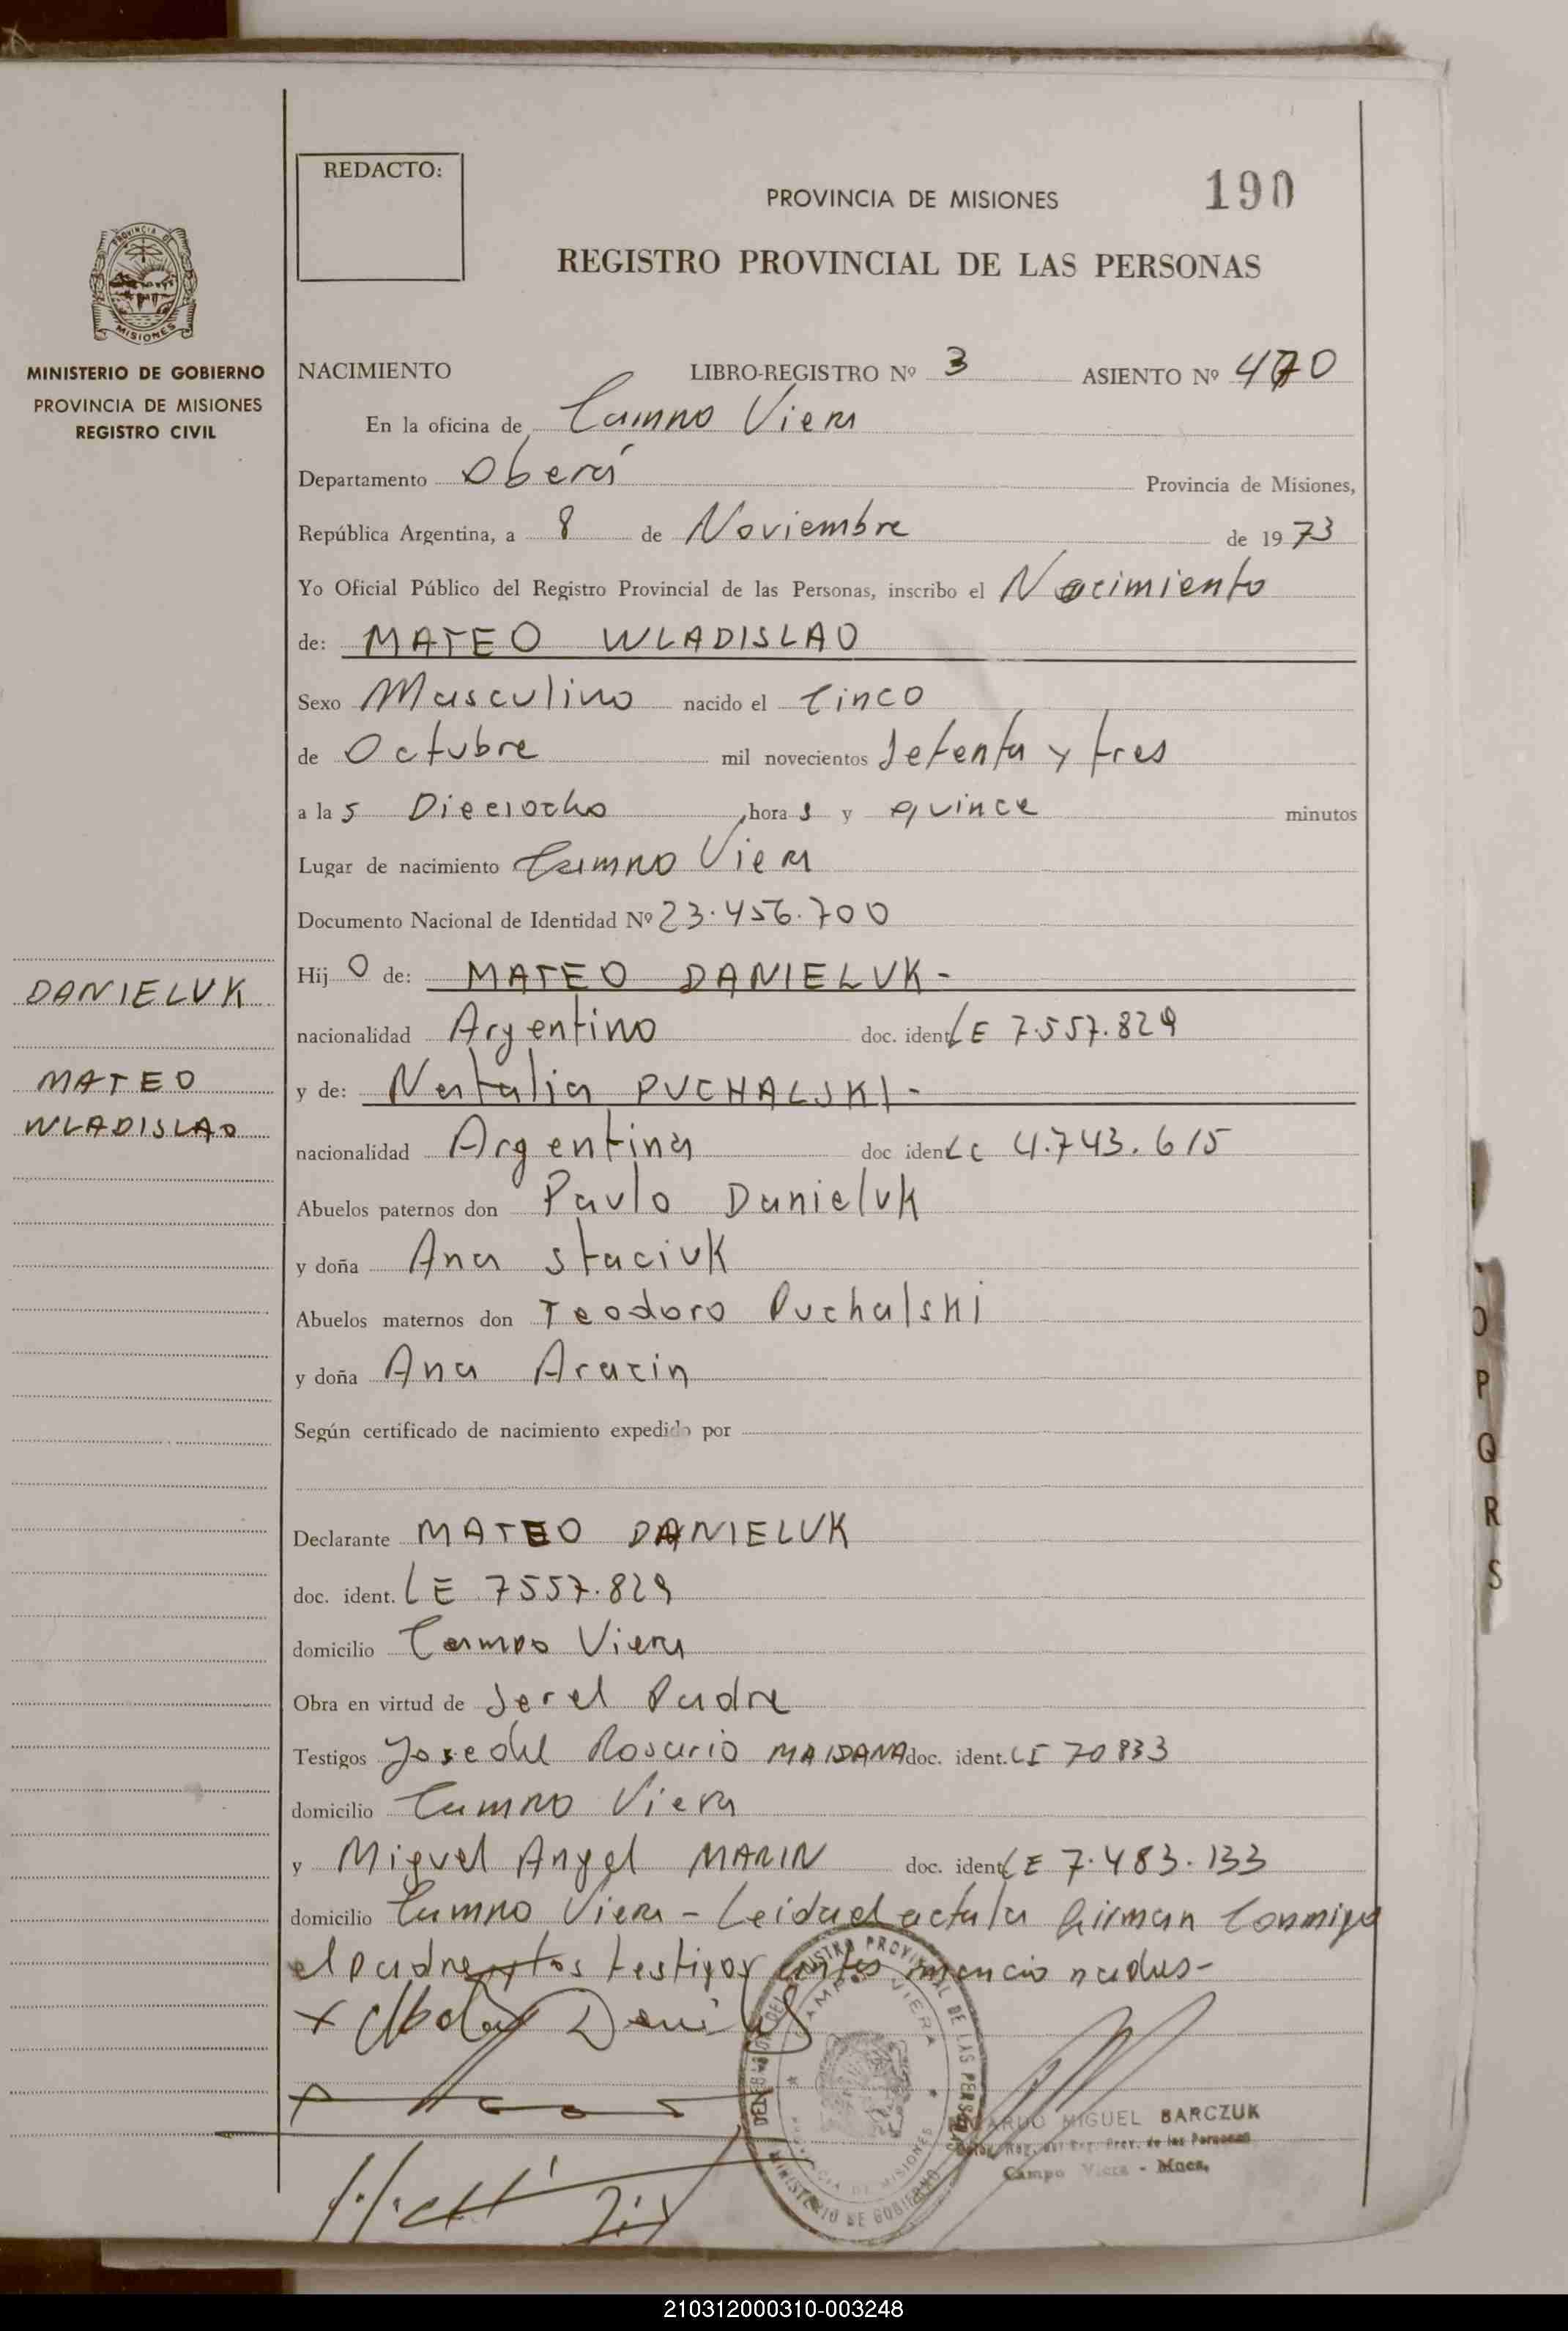 REDACTO:
PROVINCIA DE MISIONES
190
REGISTRO PROVINCIAL DE LAS PERSONAS
PROVINCIA DE
MISIONES
MINISTERIO DE GOBIERNO
PROVINCIA DE MISIONES
REGISTRO CIVIL
NACIMIENTO LIBRO-REGISTRO Nº 3 ASIENTO Nº 470
En la oficina de Campo Viera
Departamento Oberá Provincia de Misiones,
República Argentina, a 8 de Noviembre de 1973
Yo Oficial Público del Registro Provincial de las Personas, inscribo el Nacimiento
de: MATEO WLADISLAO
Sexo Masculino nacido el Cinco
de Octubre mil novecientos Setenta y tres
a las Dieciocho horas y quince minutos
Lugar de nacimiento Campo Viera
Documento Nacional de Identidad Nº 23.456.700
Hijo de: MATEO DANIELUK -
nacionalidad Argentino doc. ident. LE 7.557.829
y de: Natalia PUCHALSKI -
nacionalidad Argentina doc ident. LC 4.743.615
DANIELUK
MATEO
WLADISLAO
Abuelos paternos don Paulo Danieluk
y doña Ana Staciuk
Abuelos maternos don Teodoro Puchalski
y doña Ana Aracin
Según certificado de nacimiento expedido por
Declarante MATEO DANIELUK
doc. ident. LE 7557.829
domicilio Campo Viera
Obra en virtud de Ser el Padre
Testigos Jose del Rosario MAIDANA doc. ident. CI 70833
domicilio Campo Viera
y Miguel Angel MARIN doc. ident. LE 7.483.133
domicilio Campo Viera - Leida el acta la firman Conmigo
el padre y los testigos antes mencionados -
MIGUEL BARCZUK
Prov. de las Personas
Campo Viera - Mnes.
CAMPO VIERA
PROVINCIA DE MISIONES
MINISTERIO DE GOBIERNO
O
P
Q
R
S
210312000310-003248